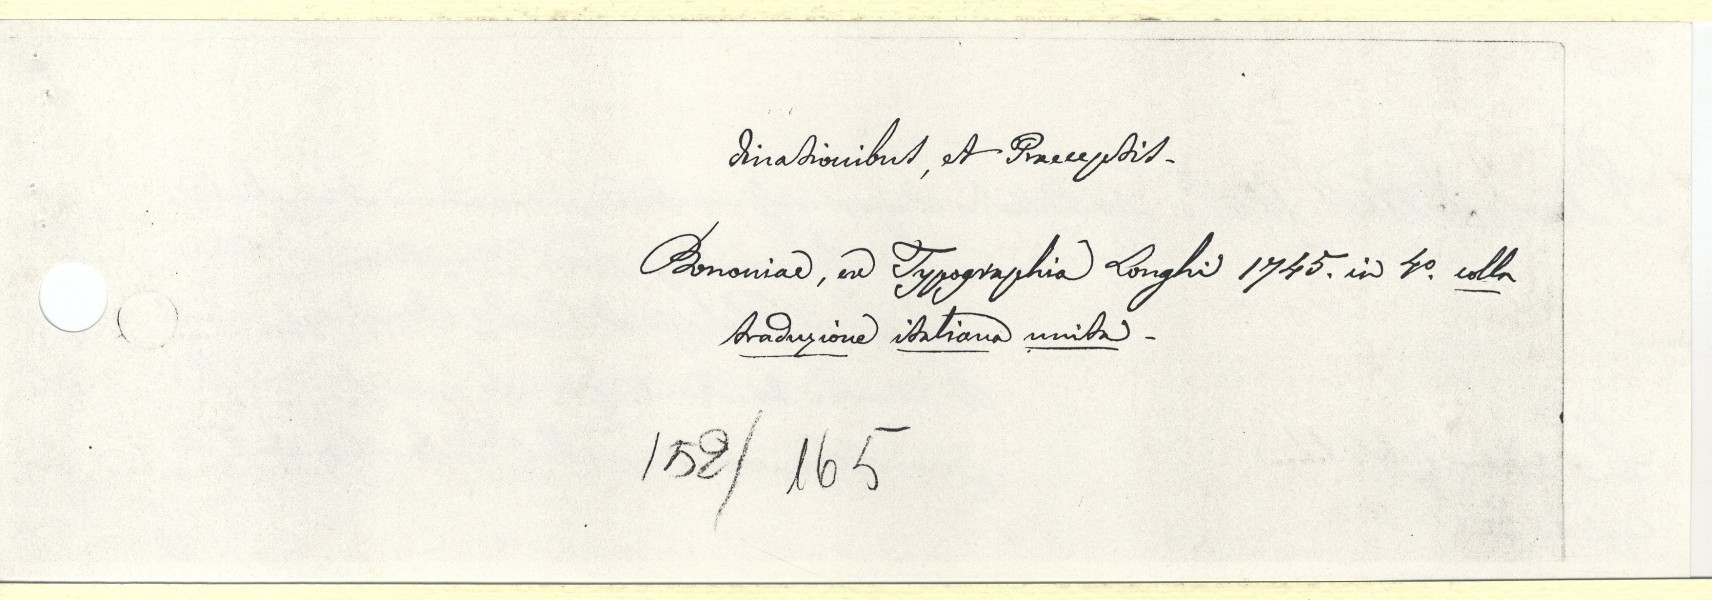 dinationibus, et Praeceptis -
Bononiae, ex Typographia Longhi 1745. in 4º. colla
traduzione italiana unita -
152/ 165